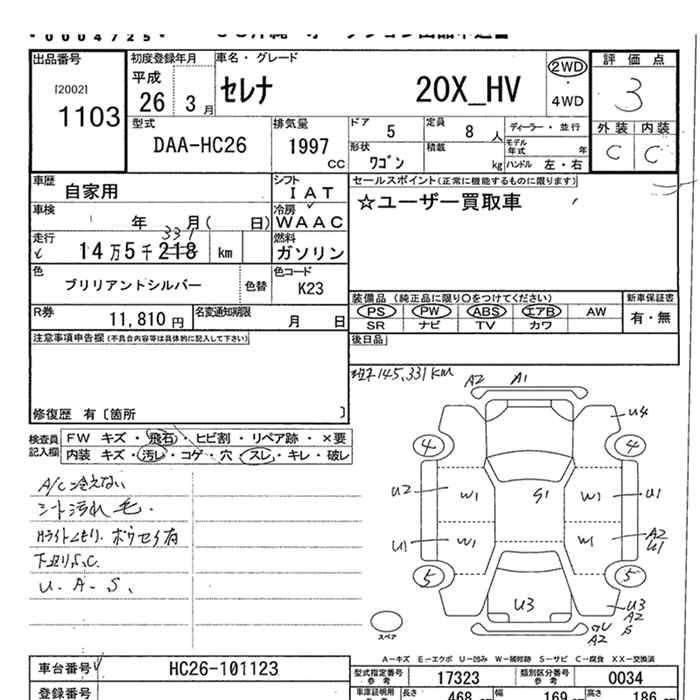 0004725
出品番号
[2002]
1103
初度登録年月
平成
26 3月
車名・グレード
セレナ 20X_HV
2WD
・
4WD
評価点
3
外装 内装
C C
型式
DAA-HC26
排気量
1997 CC
ドア 5
定員 8 人
ディーラー・並行
形状 ワゴン
積載 kg
モデル年式 年
ハンドル 左・右
車歴 自家用
シフト IAT
車検 年 月( 日)
冷房 WAAC
走行 14万5千218 km
331
燃料 ガソリン
色 ブリリアントシルバー 色替
色コード K23
R券 11,810円
名変通知期限 月 日
セールスポイント(正常に機能するものに限ります)
☆ユーザー買取車
装備品 (純正品に限り○をつけてください)
PS PW ABS エアB AW
SR ナビ TV カワ
新車保証書
有・無
後日品
注意事項申告欄(不具合内容等は具体的に記入して下さい)
修復歴 有〔箇所 〕
検査員記入欄
FW キズ・飛石・ヒビ割・リペア跡・×要
内装 キズ・汚レ・コゲ・穴・スレ・キレ・破レ
A/C冷えない
シート汚れ 毛.
Hライトくもり. ボウセイ有
下廻りS.C.
U.A.S.
145,331KM
A2 A1
U4
4 4
U2 W1 G1 W1 U1
U1 W1 W1 A2 U1
5 5
U3
U3 A2 S
U A2
スペア
A−キズ E−エクボ U−凹み W−補修跡 S−サビ C−腐食 XX−交換済
車台番号 HC26-101123
型式指定番号 参考 17323
類別区分番号 参考 0034
登録番号
車庫証明用 参考 長さ 468 幅 169 高さ 186